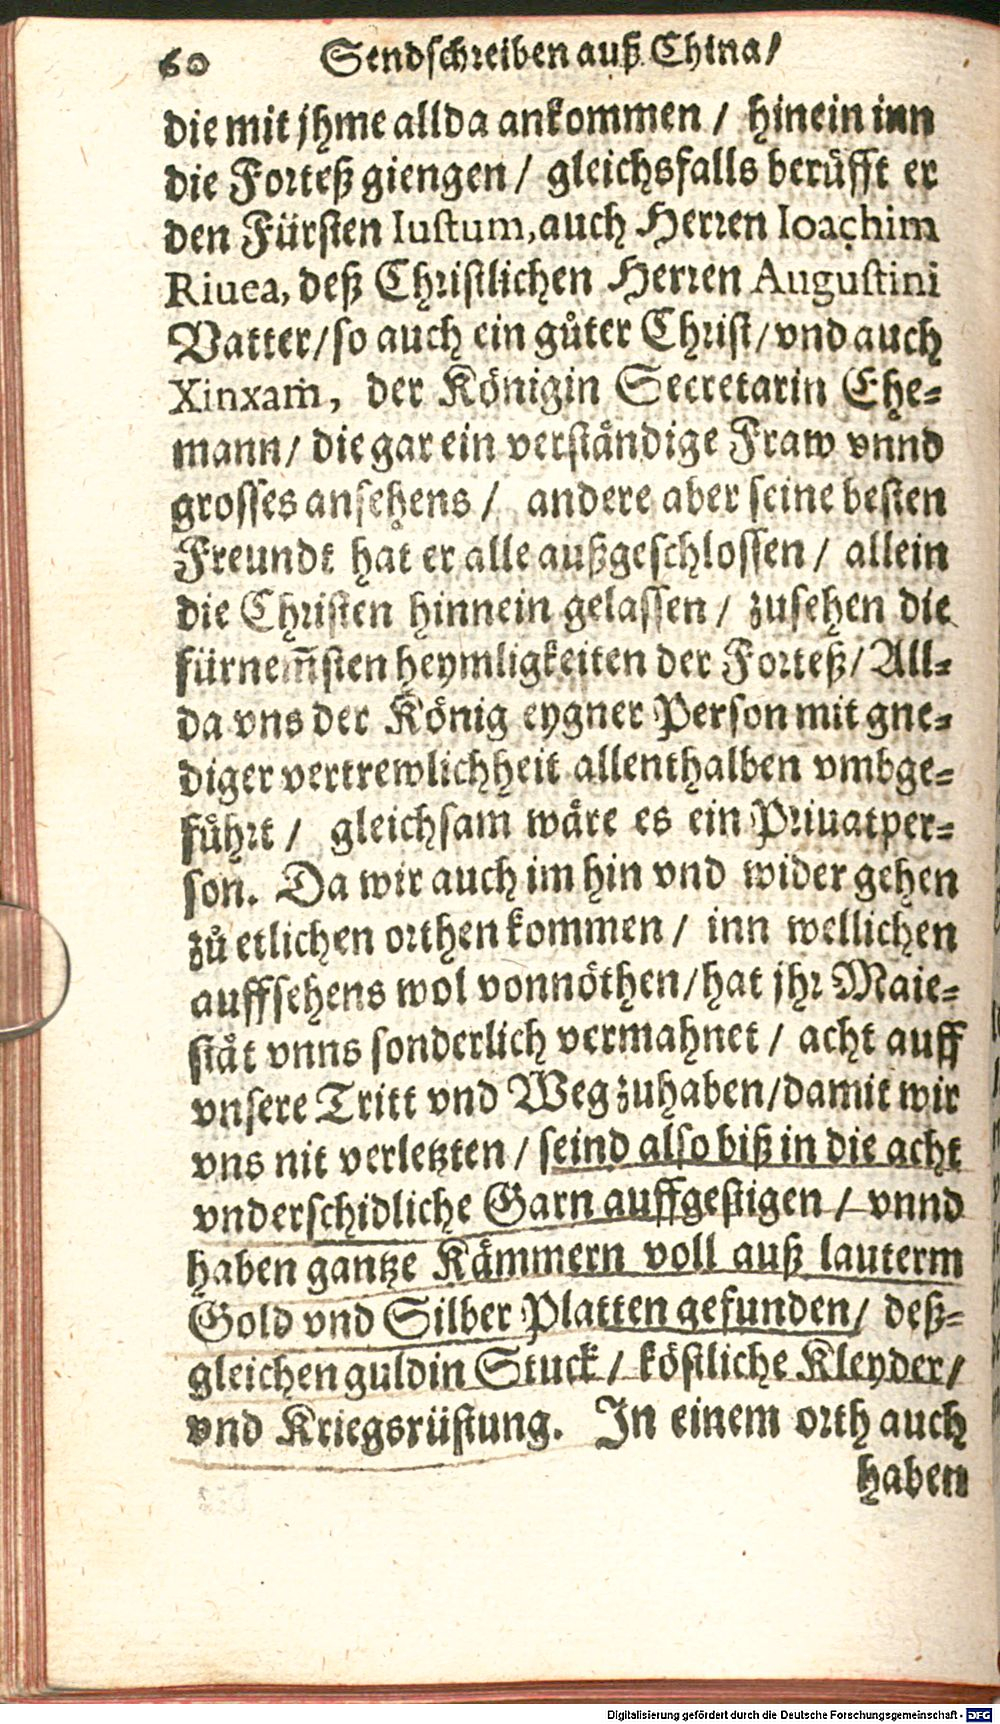 60 Sendschreiben auß China/
die mit jhme allda ankommen / hinein inn
die Forteß giengen / gleichsfalls berüfft er
den Fürsten Iustum, auch Herren Ioachim
Riuea, deß Christlichen Herren Augustini
Vatter/ so auch ein gůter Christ/ vnd auch
Xinxam, der Königin Secretarin Ehe-
mann/ die gar ein verständige Fraw vnnd
grosses ansehens / andere aber seine besten
Freundt hat er alle außgeschlossen / allein
die Christen hinnein gelassen / zusehen die
fürnem̃sten heymligkeiten der Forteß/ All-
da vns der König eygner Person mit gne-
diger vertrewlichheit allenthalben vmbge-
führt / gleichsam wäre es ein Priuatper-
son. Da wir auch im hin vnd wider gehen
zů etlichen orthen kommen / inn wellichen
auffsehens wol vonnöthen/ hat jhr Maie-
stät vnns sonderlich vermahnet / acht auff
vnsere Tritt vnd Weg zuhaben/ damit wir
vns nit verletzten / seind also biß in die acht
vnderschidliche Garn auffgestigen / vnnd
haben gantze Kämmern voll auß lauterm
Gold vnd Silber Platten gefunden/ deß-
gleichen guldin Stuck / köstliche Kleyder/
vnd Kriegsrüstung. In einem orth auch
haben
Digitalisierung gefördert durch die Deutsche Forschungsgemeinschaft - DFG